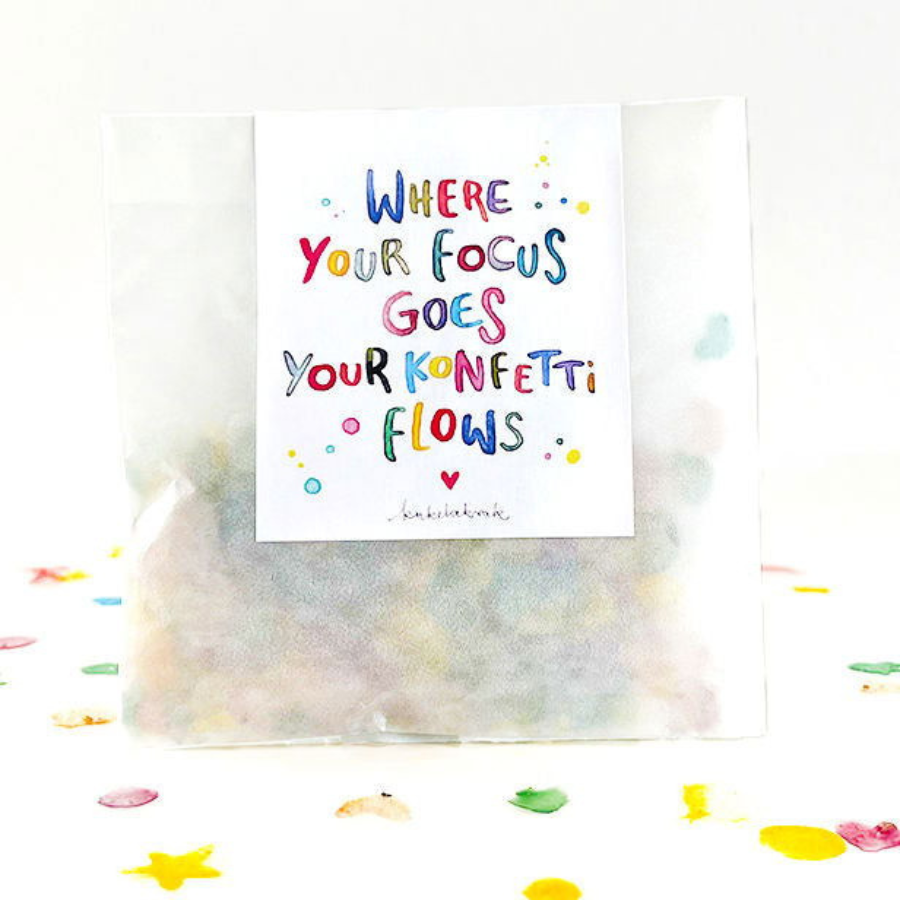 WHERE
YOUR FOCUS
GOES
YOUR KONFETTi
FLOWS